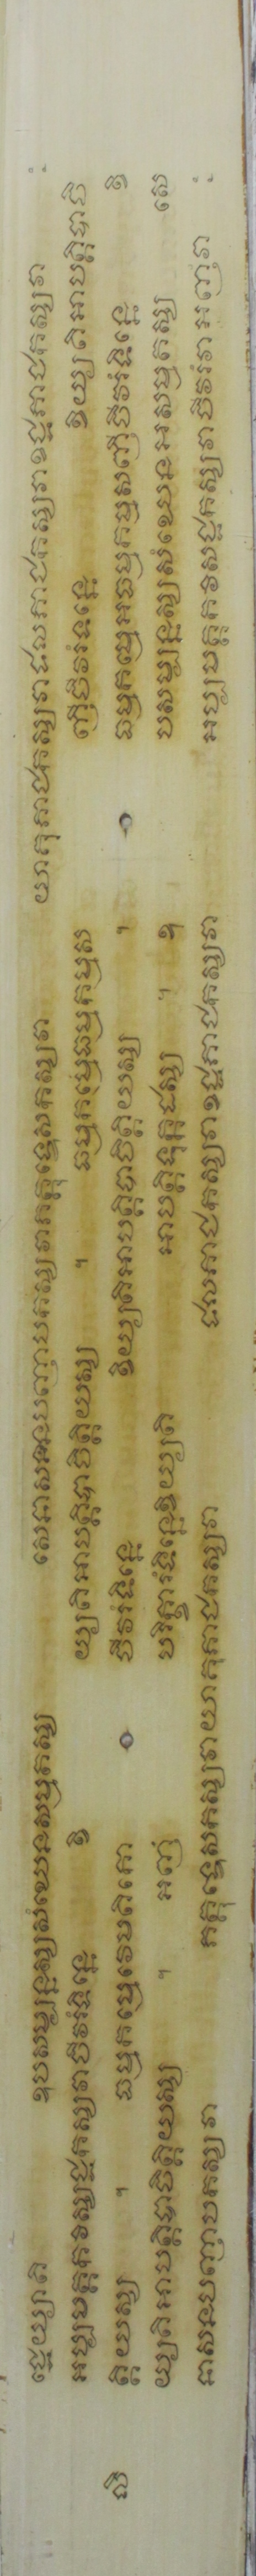 ជ្ឈេយ្យាតិ ឧបសម្បន្នស្សសំឃេនសម្មតស្ស សេនាសនបញ្ញាបកស្សវាភត្តុទ្ទេសកស្សវា យាគុភាជកស្សវាផលភាជកស្សវាខជ្ជភាជកស្សវា
អប្បមត្តកវិស្សជ្ជកស្សវាចីវរំទិន្នេ ខិ យ្យតិអាបត្តិបាចិត្តិយស្ស ។ ធម្មកម្មេធម្មកម្មស ញ្ញីចីវរំទិន្នេ ខិយ្យតិអាបត្តិបាចិ
ត្តិយស្ស ។ ធម្មកម្មេវេមតិកោ ចីវរំទិន្នេ ខិយ្យតិអាបត្តិបាចិត្តិយស្ស ។ ធម្មកម្មេអធម្មកម្មសញ្ញីចីវរំទិន្នេ ខិ
យ្យតិអាបត្តិបាចិត្តិយស្ស ។ អញ្ញំ បរិក្ខារំទិន្នេខិយ្យតិ អាបត្តិទុក្កដស្ស ។ ឧ បសម្បន្នស្សសំឃេនអសម្មតស្ស សេ
នាសនបញ្ញាបកស្សវា ភត្តុទ្ទេសកស្សវាយាគុភាជកស្សវា ផលភាជកស្សវាខជ្ជភាជកស្សវា អប្បមត្តកវិសជ្ជកស្សវាចីវរំវាអញ្ញំវា